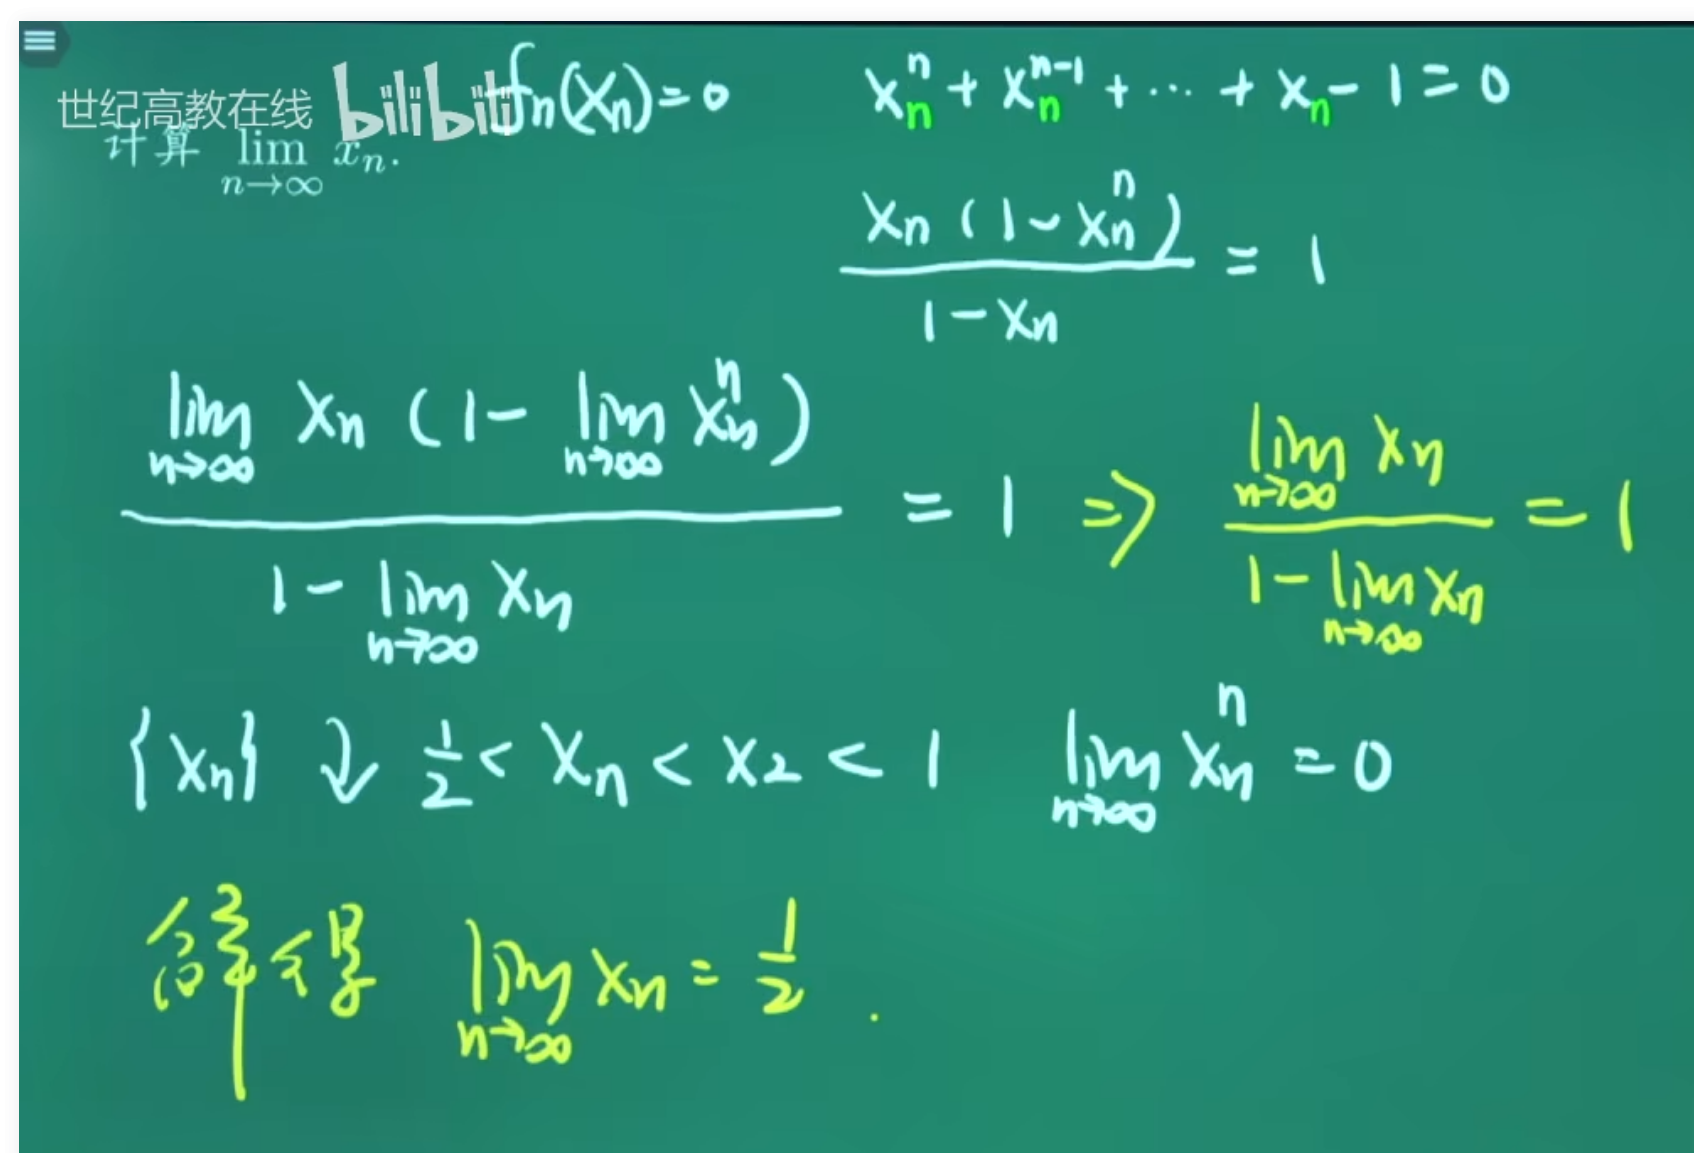 世纪高教在线 bilibili fₙ(xₙ)=0 xₙⁿ + xₙⁿ⁻¹ + ⋯ + xₙ - 1 = 0
计算 lim_{n→∞} xₙ.
xₙ(1-xₙⁿ)/(1-xₙ) = 1
lim_{n→∞} xₙ (1 - lim_{n→∞} xₙⁿ) / (1 - lim_{n→∞} xₙ) = 1 ⇒ lim_{n→∞} xₙ / (1 - lim_{n→∞} xₙ) = 1
{xₙ} ↓ 1/2 < xₙ < x₂ < 1 lim_{n→∞} xₙⁿ = 0
解得 lim_{n→∞} xₙ = 1/2 .